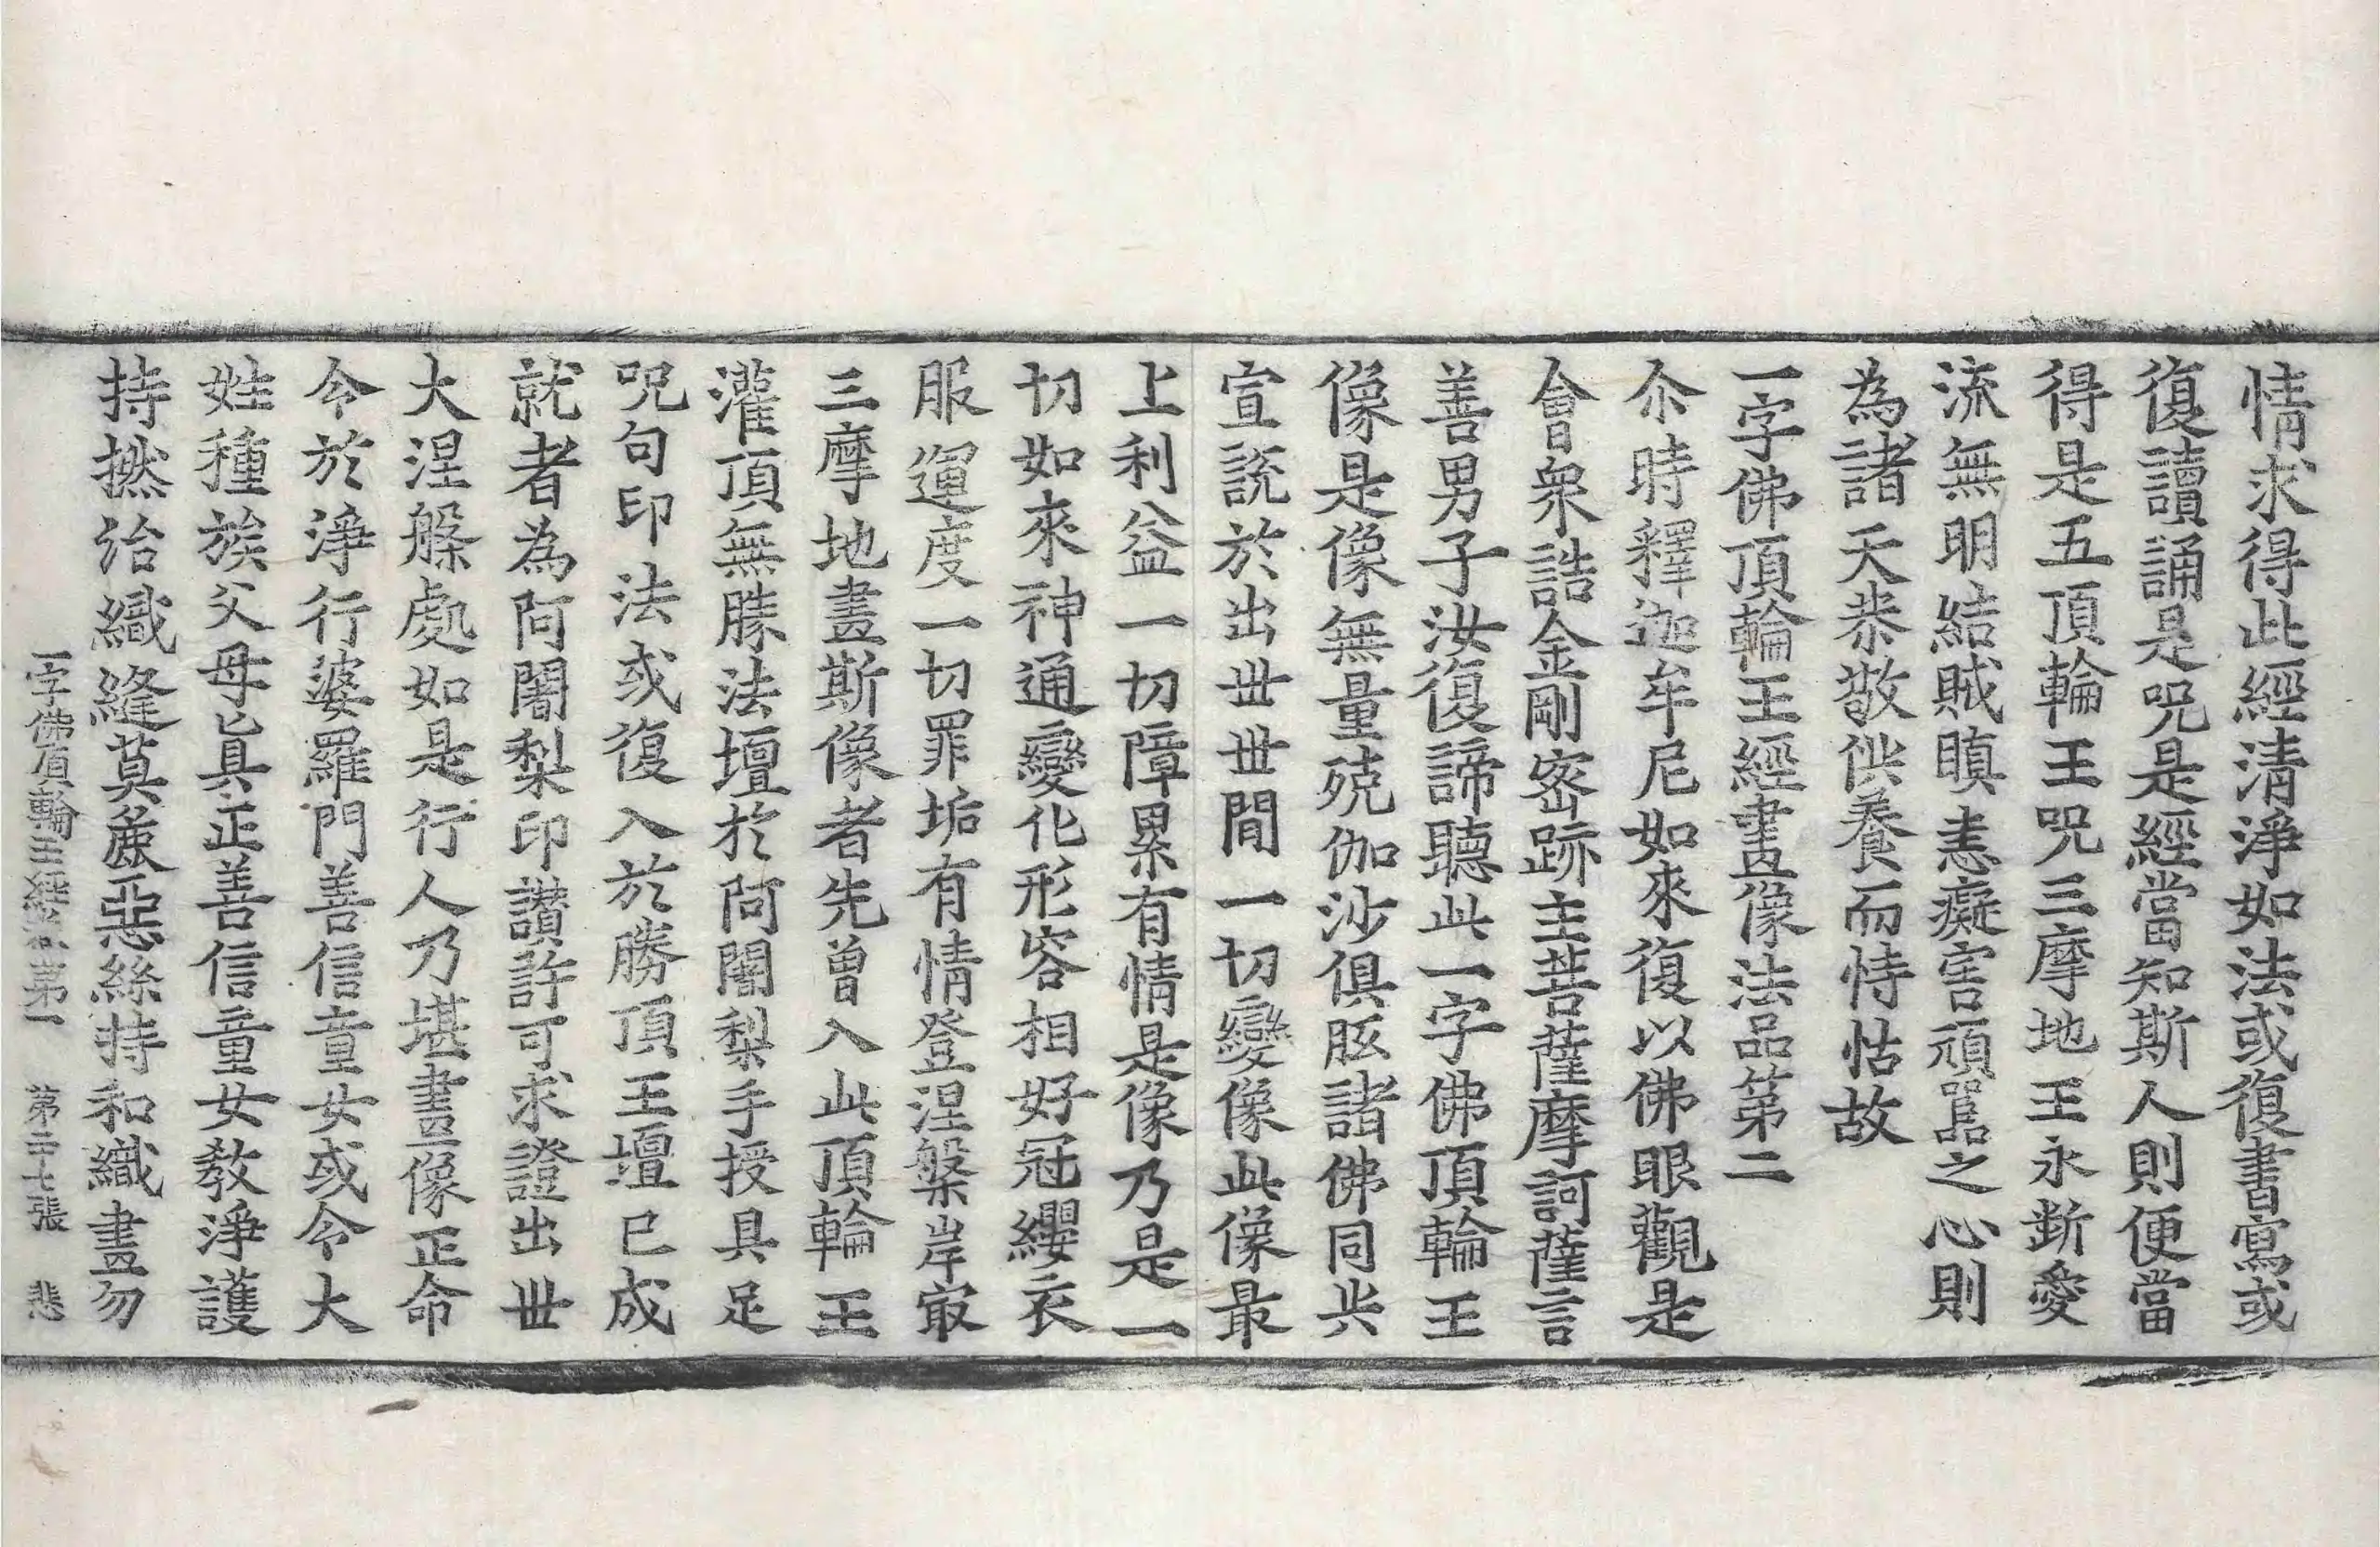 情求得此經清淨如法或復書寫或
復讀誦是呪是經當知斯人則便當
得是五頂輪王呪三摩地王永斷愛
流無明結賊瞋恚癡害頑嚚之心則
為諸天恭敬供養而恃怙故
一字佛頂輪王經畫像法品第二
尒時釋迦牟尼如來復以佛眼觀是
會衆誥金剛密跡主菩薩摩訶薩言
善男子汝復諦聽此一字佛頂輪王
像是像無量殑伽沙俱胝諸佛同共
宣說於出世世間一切變像此像最
上利益一切障累有情是像乃是一
切如來神通變化形容相好冠纓衣
服運度一切罪垢有情登涅槃岸冣
三摩地畫斯像者先曾入此頂輪王
灌頂無勝法壇於阿闍梨手授具足
呪句印法或復入於勝頂王壇已成
就者為阿闍梨印讚許可求證出世
大涅槃處如是行人乃堪畫像正命
令於淨行婆羅門善信童女或令大
姓種族父母真正善信童女教淨護
持撚治織縫莫麁惡絲持和織畫勿
一字佛頂輪王經第一 第二七張 悲